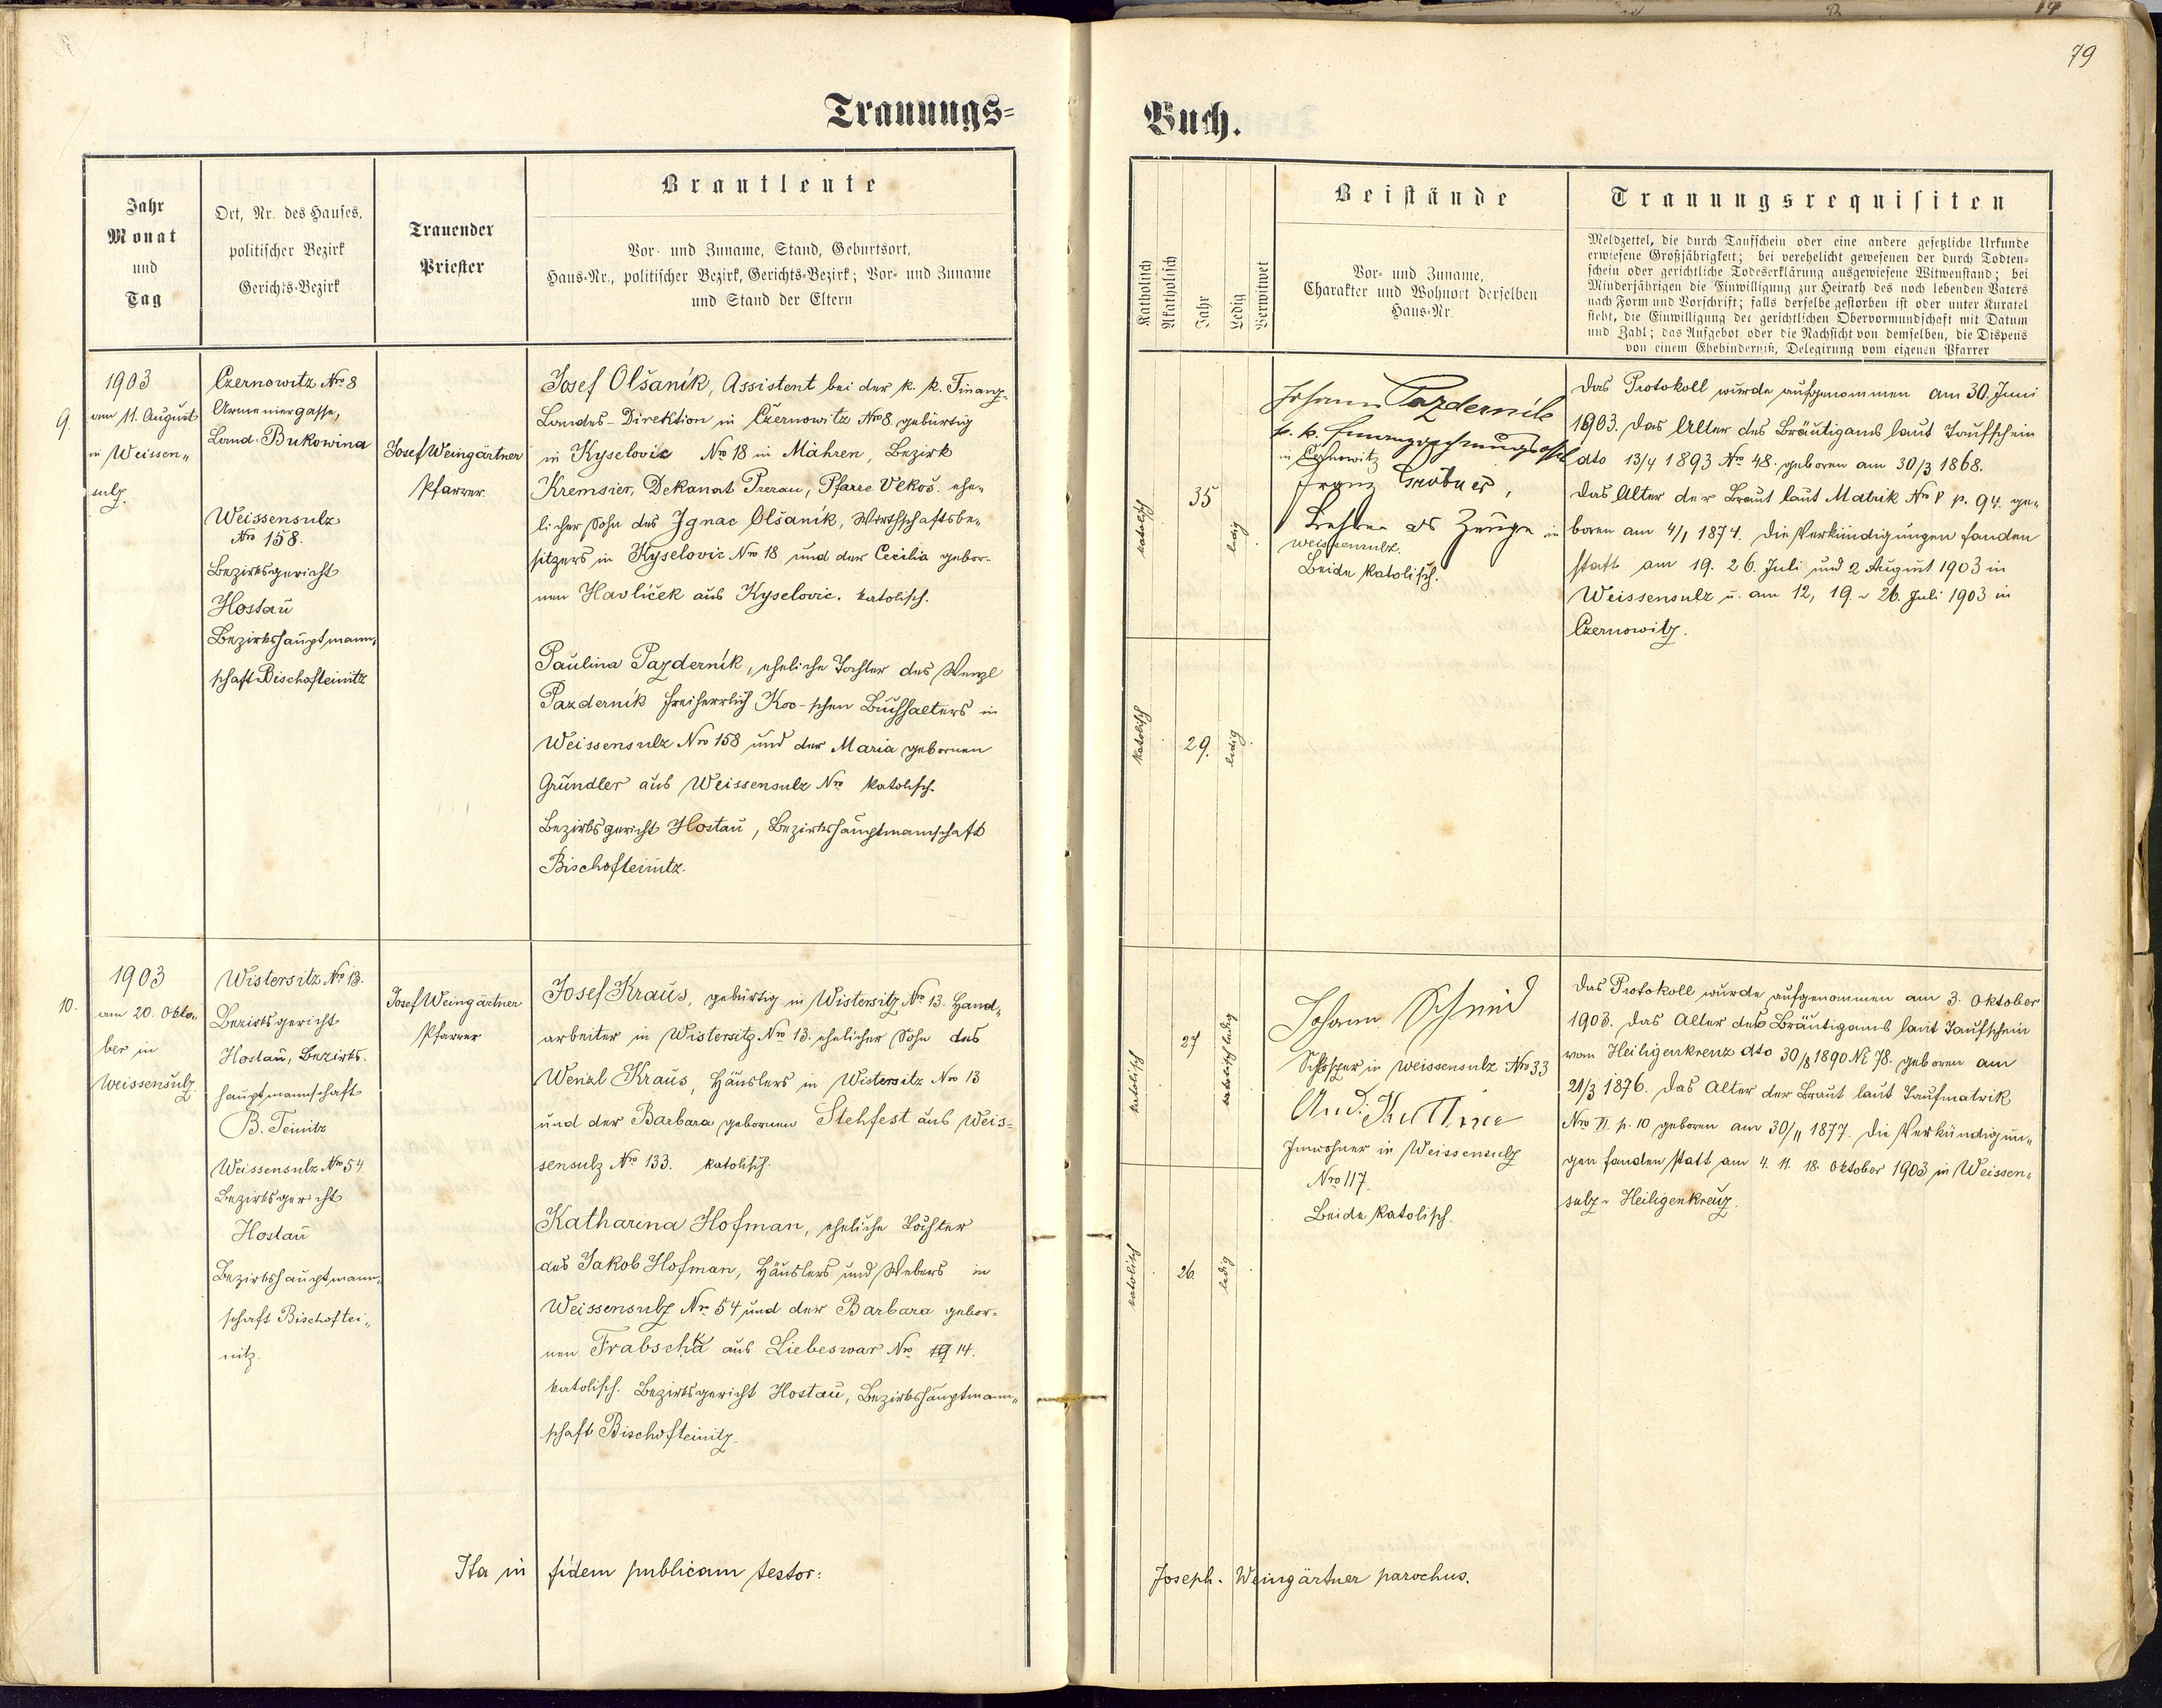 79
Trauungs=
Buch.
Jahr
Monat
und
Tag
Ort, Nr. des Hauses,
politischer Bezirk
Gerichts-Bezirk
Trauender
Priester
Brautleute
Vor- und Zuname, Stand, Geburtsort,
Haus-Nr., politischer Bezirk, Gerichts-Bezirk; Vor- und Zuname
und Stand der Eltern
9.
1903
am 11. August
in Weissen„
sulz.
Czernowitz Nro 8
Armeniergasse,
Land Bukowina
Weissensulz
Nro 158.
Bezirksgericht
Hostau
Bezirkshauptmann„
schaft Bischofteinitz
Josef Weingärtner
Pfarrer
Josef Olšaník, Assistent bei der k. k. Finanz-
Landes-Direktion in Czernowitz Nro 8 gebürtig
in Kyselovic Nro 18 in Mähren, Bezirk
Kremsier, Dekanat Prerau, Pfarre Vlkoš. ehe„
licher Sohn des Ignac Olšaník, Wirthschaftsbe„
sitzers in Kyselovic Nro 18 und der Cecilia gebor-
nen Havlíček aus Kyselovic. katolisch.
Paulina Pazderník, eheliche Tochter des Wenzl
Pazderník freiherrlich Koc-schen Buchhalters in
Weissensulz Nro 158 und der Maria gebornen
Gründler aus Weissensulz Nro katolisch.
Bezirksgericht Hostau, Bezirkshauptmannschaft
Bischofteinitz.
10.
1903
am 20. Okto„
ber in
Weissensulz.
Wistersitz Nro 13.
Bezirksgericht
Hostau, Bezirks-
hauptmannschaft
B. Teinitz
Weissensulz Nro 54
Bezirksgericht
Hostau
Bezirkshauptmann„
schaft Bischoftei„
nitz.
Josef Weingärtner
Pfarrer
Josef Kraus, gebürtig in Wistersitz Nro 13. Hand„
arbeiter in Wistersitz Nro 13. ehelicher Sohn des
Wenzl Kraus, Häuslers in Wistersitz Nro 13
und der Barbara gebornen Stehfest aus Weis=
sensulz Nro 133. katolisch.
Katharina Hofman, eheliche Tochter
des Jakob Hofman, Häuslers und Webers in
Weissensulz Nr. 54 und der Barbara gebor-
nen Frabscha aus Liebeswar Nro 14.
katolisch. Bezirksgericht Hostau, Bezirkshauptmann„
schaft Bischofteinitz.
Ita in fidem publicam testor:
Katholisch
Akatholisch
Jahr
Ledig
Verwitwet
Beistände
Vor- und Zuname,
Charakter und Wohnort derselben
Haus-Nr.
Trauungsrequisiten
Meldzettel, die durch Taufschein oder eine andere gesetzliche Urkunde
erwiesene Großjährigkeit; bei verehelicht gewesenen der durch Todten-
schein oder gerichtliche Todeserklärung ausgewiesene Witwenstand; bei
Minderjährigen die Einwilligung zur Heirath des noch lebenden Vaters
nach Form und Vorschrift; falls derselbe gestorben ist oder unter Kuratel
steht, die Einwilligung der gerichtlichen Obervormundschaft mit Datum
und Zahl; das Aufgebot oder die Nachsicht von demselben, die Dispens
von einem Ehehinderniß, Delegirung vom eigenen Pfarrer
katolisch
35
ledig
Johann Pazderník
k. k.
in Czernowitz
Franz Gröbner,
Lehrer als Zeuge in
Weissensulz.
Beide katolisch.
Das Protokoll wurde aufgenommen am 30. Juni
1903. Das Alter des Bräutigams laut Taufschein
dto 13/4 1893 Nro 48. geboren am 30/3 1868.
Das Alter der Braut laut Matrik Nro V p. 94. ge„
boren am 4/1 1874. Die Verkündigungen fanden
statt am 19. 26. Juli und 2 August 1903 in
Weissensulz u. am 12, 19. u 26. Juli 1903 in
Czernowitz.
katolisch
29.
ledig
katolisch
27
katolisch ledig
Johann Schmid
Schlosser in Weissensulz Nro 33
And.
Inwohner in Weissensulz
Nro 117.
Beide katolisch.
Das Protokoll wurde aufgenommen am 3. Oktober
1903. Das Alter des Bräutigams laut Taufschein
vom Heiligenkreuz dto 30/8 1890 No 78. geboren am
21/3 1876. Das Alter der Braut laut Taufmatrik
Nro VI p. 10 geboren am 30/11 1877. Die Verkündigun„
gen fanden statt am 4. 11. 18. Oktober 1903 in Weissen„
sulz u Heiligenkreuz.
katolisch
26
ledig
Joseph. Weingärtner parochus.